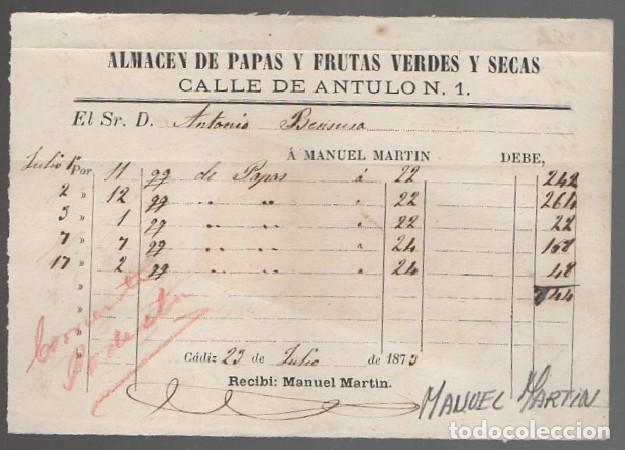 ALMACEN DE PAPAS Y FRUTAS VERDES Y SECAS
CALLE DE ANTULO N. 1.
El Sr. D. Antonio
Á MANUEL MARTIN DEBE,
Julio 1º Por 11 qq de Papas á 22 242
2 » 12 qq " " 22 264
3 » 1 qq " " 22 22
7 » 7 qq " " 24 168
17 » 2 qq " " 24 48
» 744
»
»
»
Corriente
Cádiz 23 de Julio de 1873
Recibí: Manuel Martin.
MANUEL MARTIN
todocoleccion.net